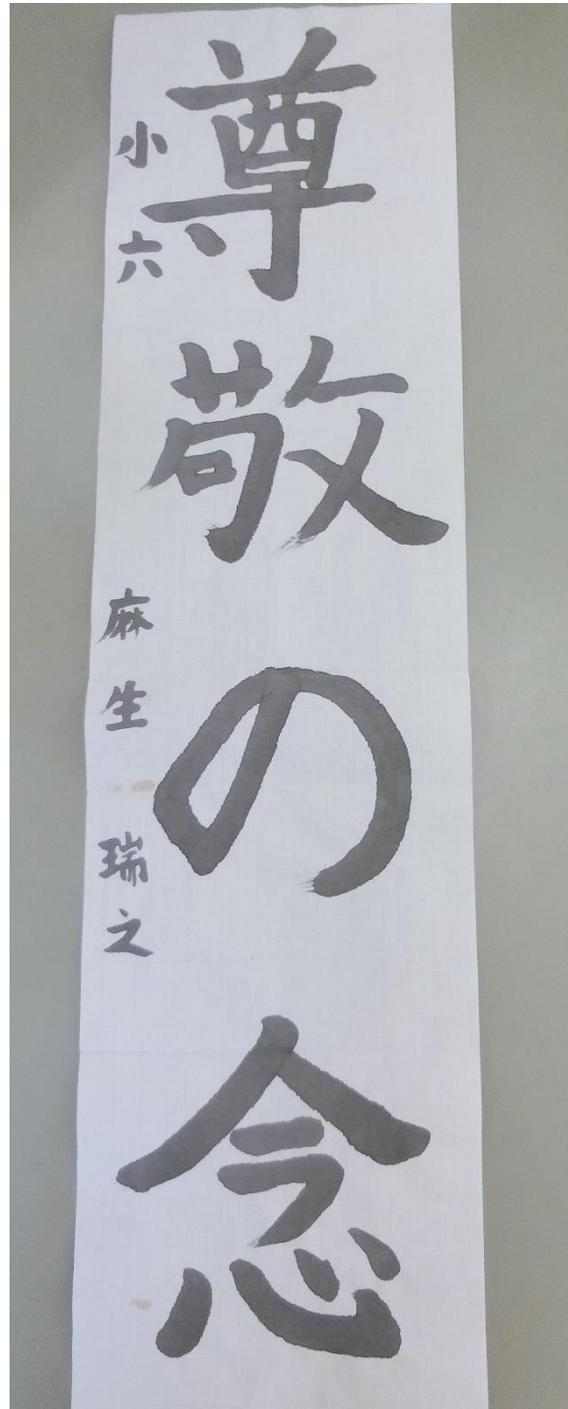 尊敬の念
小六 麻生 瑞之